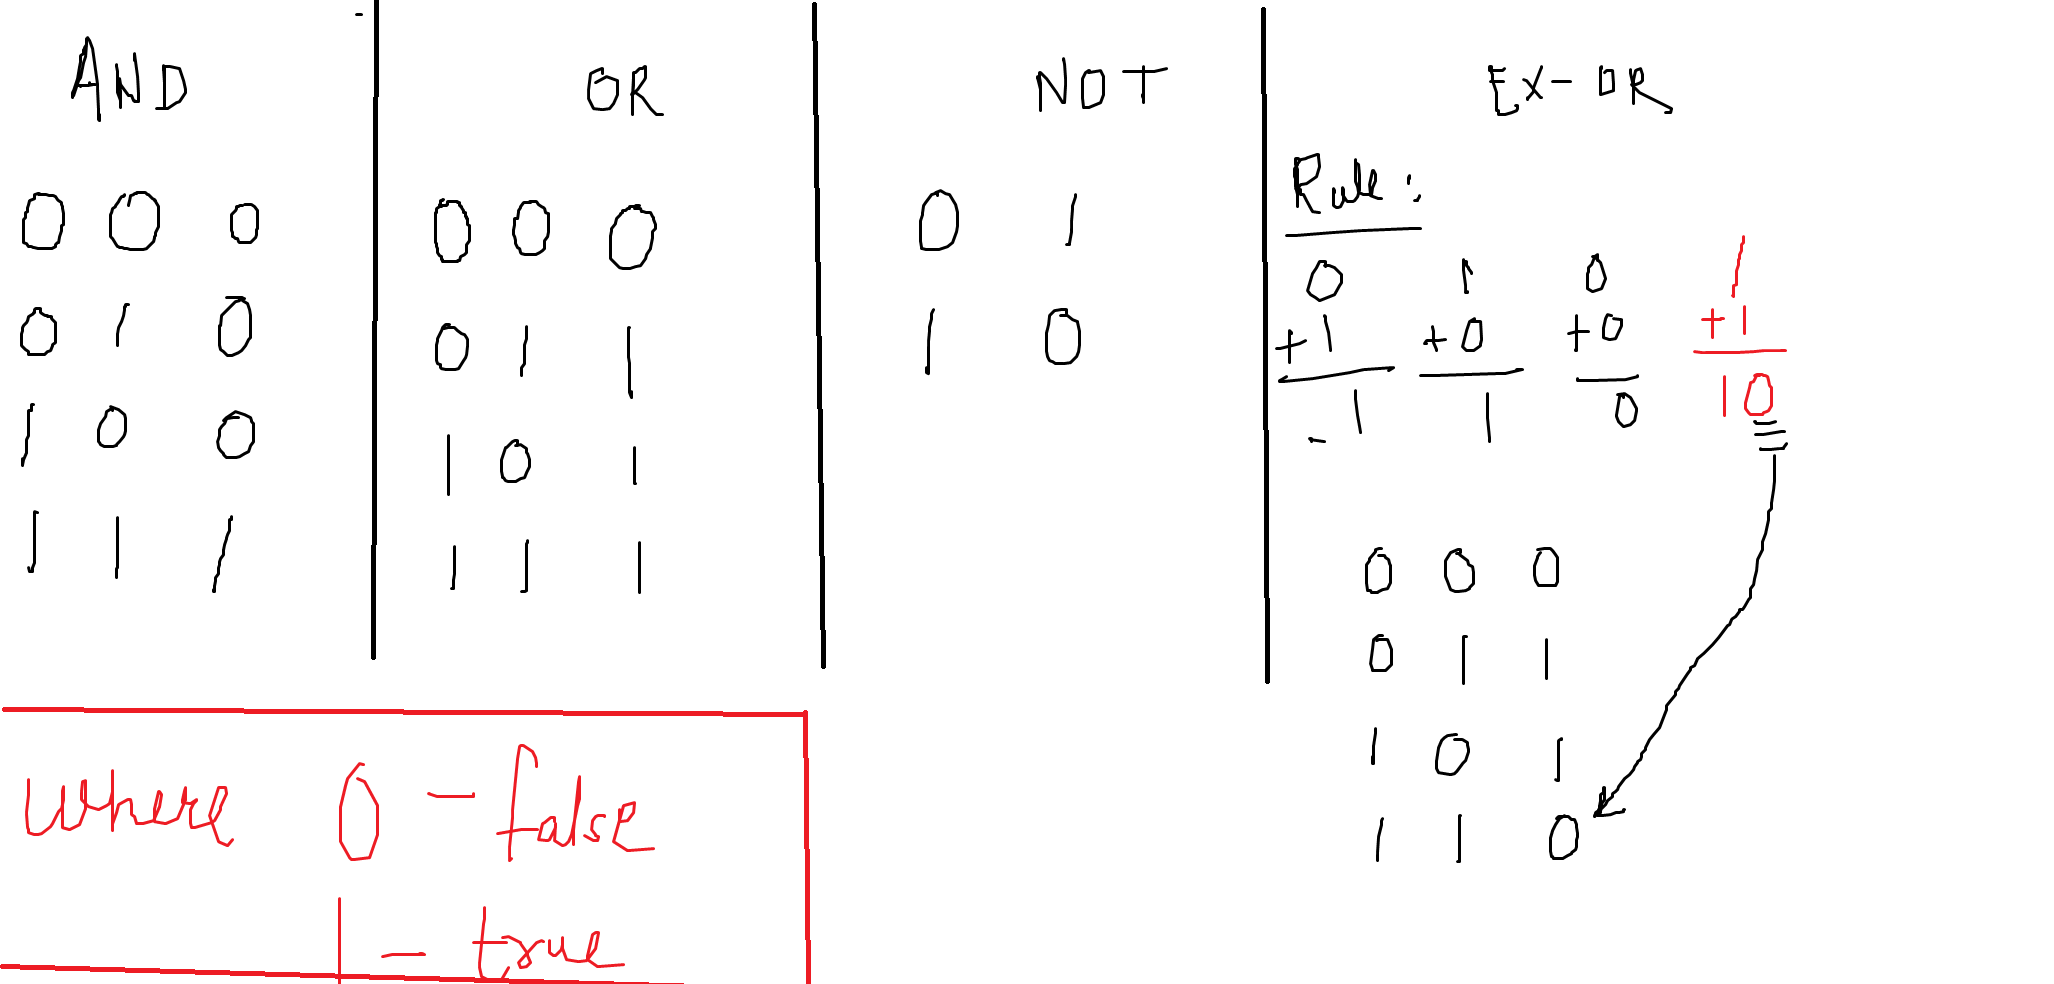 AND
0 0 0
0 1 0
1 0 0
1 1 1
OR
0 0 0
0 1 1
1 0 1
1 1 1
NOT
0 1
1 0
EX-OR
Rule:
0 1 0 1
+1 +0 +0 +1
1 1 0 10
0 0 0
0 1 1
1 0 1
1 1 0
Where 0 - false
1 - true